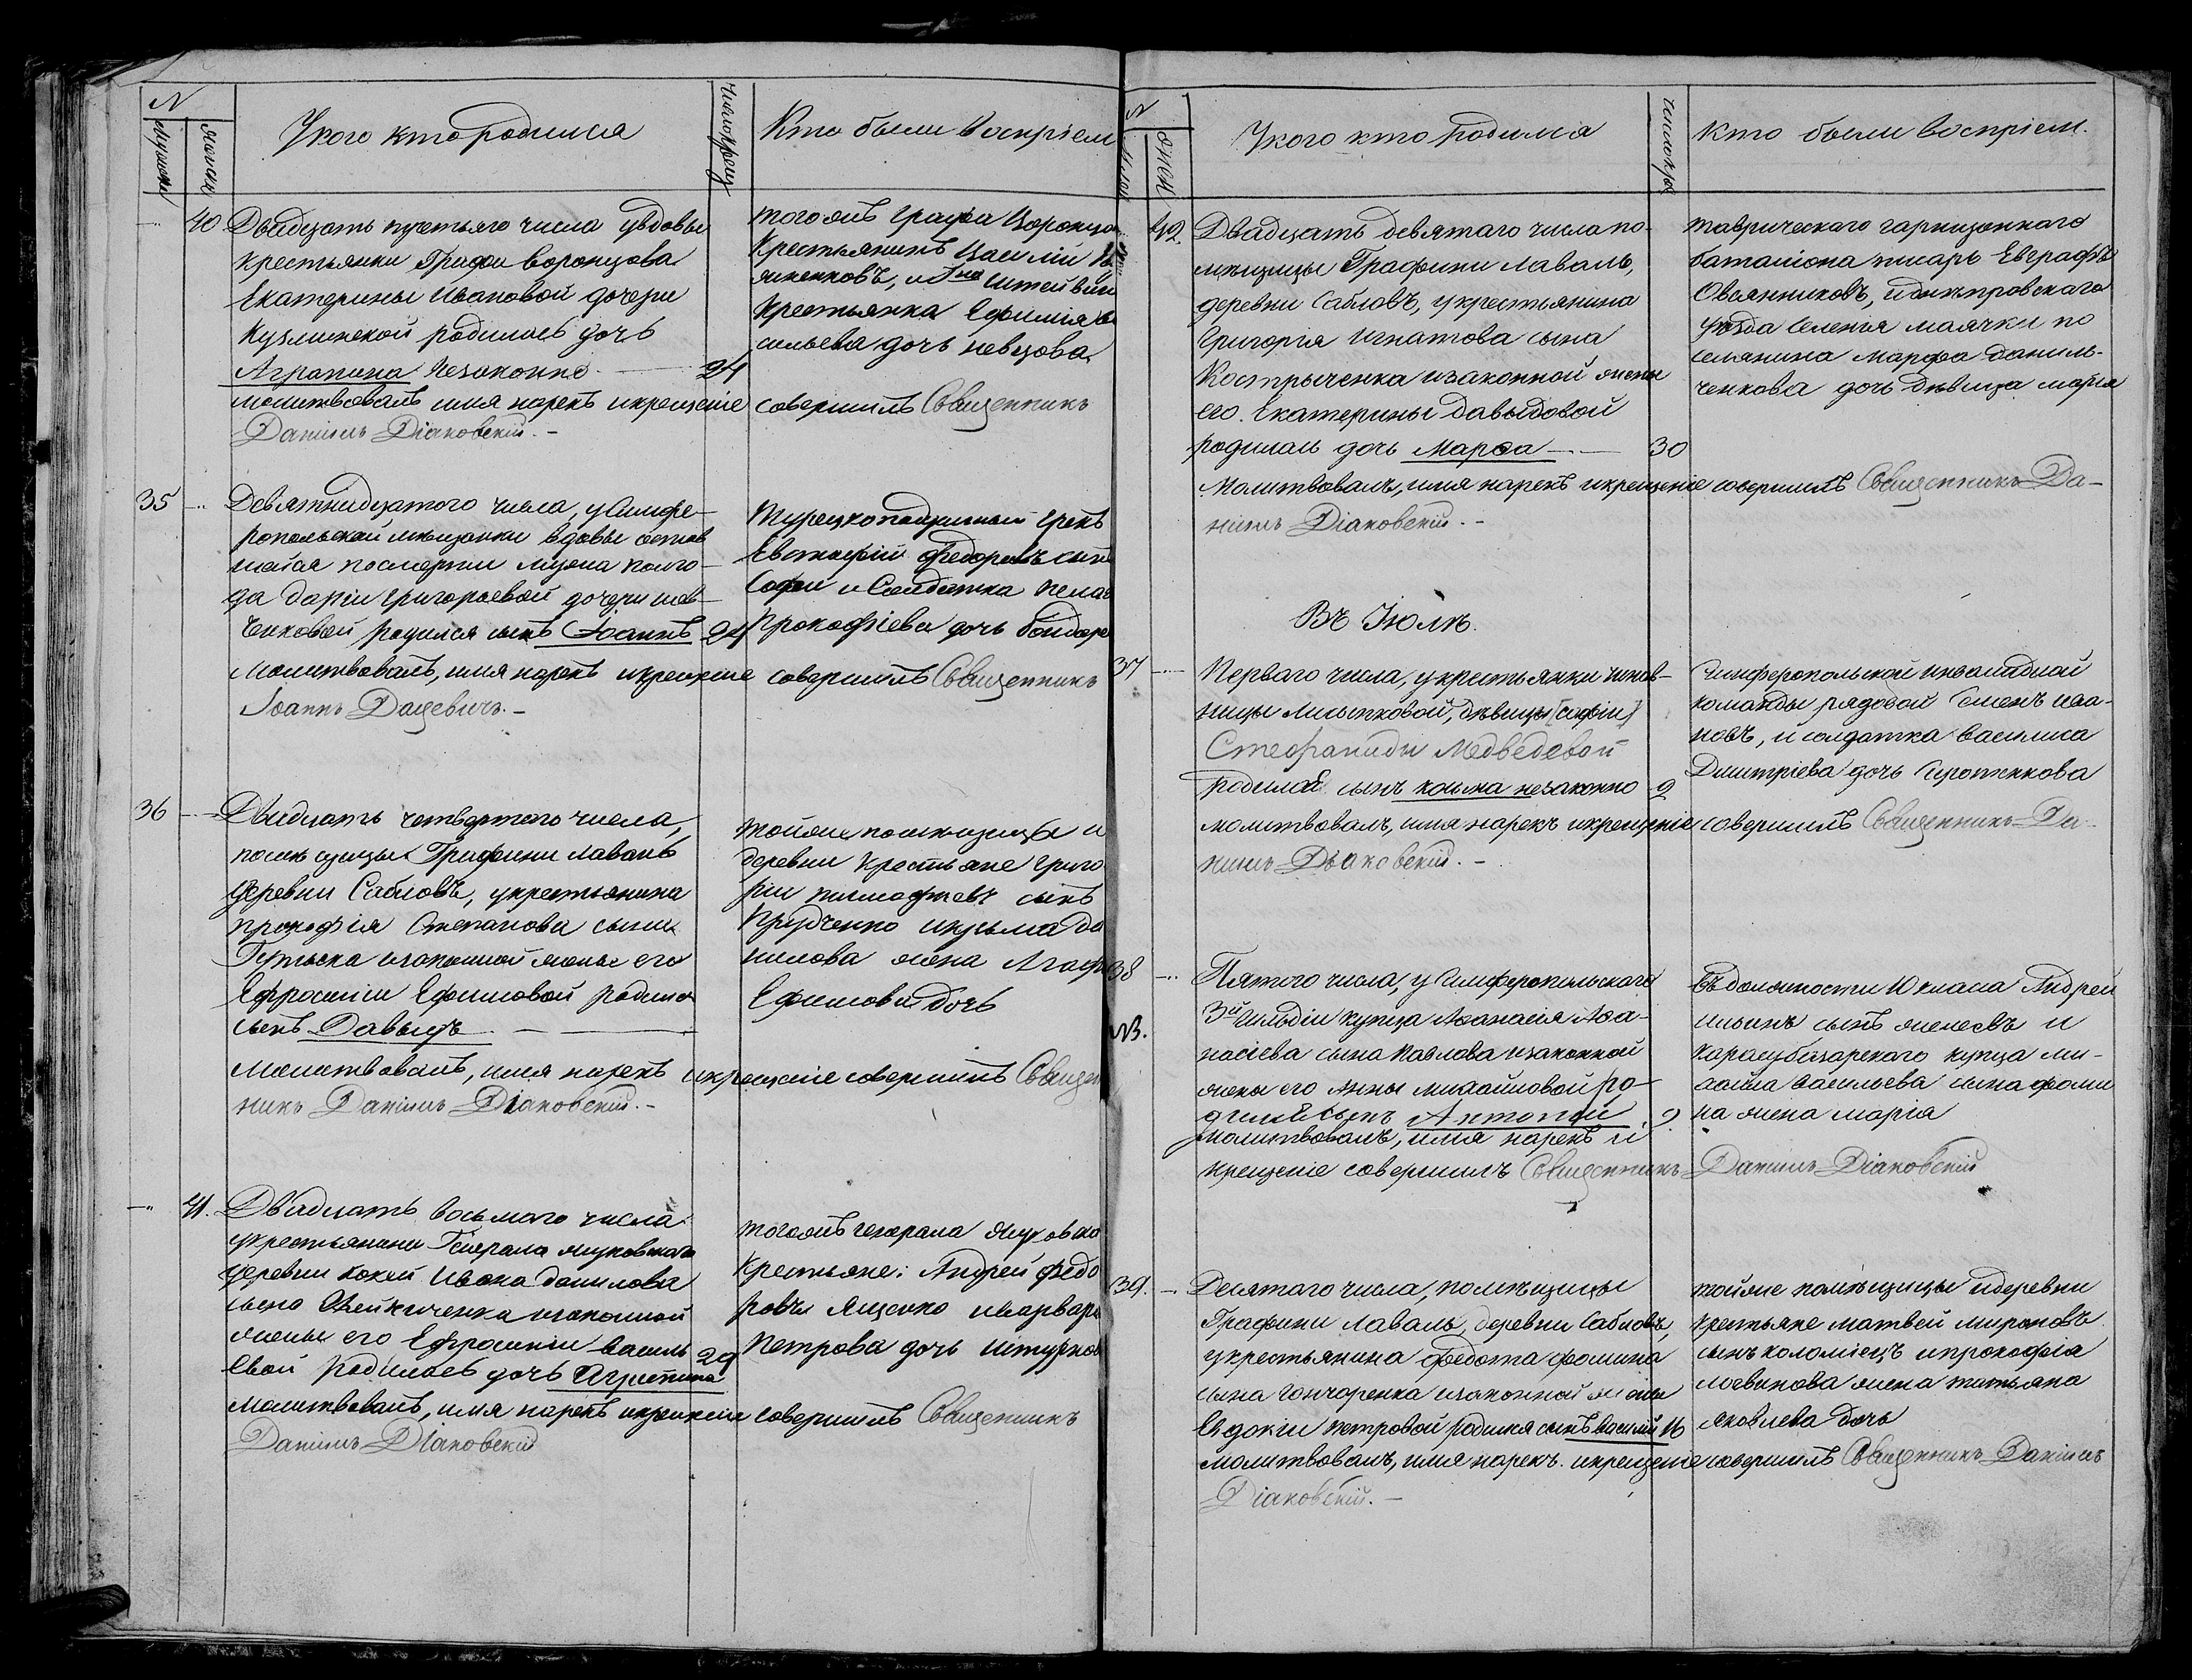 N
Мужеск
Женска
У кого кто родился
число крещ
Кто были Воспріем
40 Двадцать третьяго числа увдовы
крестьянки Графа Воронцова
Екатерины Ивановой дочери
Кузминской родилась дочь
Агрипина незаконно 24
молитвовалъ имя нарекъ икрещеніе совершилъ Священникъ
Даніилъ Діаковскій. –
тогожъ Графа Воронцо
Крестьянинъ Василій
и Штейвин
Крестьянка Ефимія Ва
сильева дочь Невцова
35 Девятнадцатого числа, уСимфе-
ропольской мещанки вдовы остав
шейся послерти мужа
да Даріи Григорьевой дочери Шев-
ченковой родился сынъ Іоаннъ 24
молитвовалъ, имя нарекъ икрещеніе совершилъ Священникъ
Іоаннъ Дацевичъ. –
Турецкоподданный Грекъ
Евстафій Федоровъ сынъ
Софои и Солдатка Пела
Прокофіева дочь Бондаре
36 Двадцать четвертого числа,
помѣщицы Графини Лаваль
деревни Сабловъ, укрестьянина
Прокофія Степанова сына
изаконной жены его
Ефросиніи Ефимовой родился
сынъ Давыдъ
Молитвовалъ, имя нарекъ икрещеніе совершилъ Священ
никъ Даніилъ Діаковскій. –
тойже помѣщицы и
деревни крестьяне Григо
рій Тимофеевъ сынъ
Прудченко икузьма Да
нилова жена Агаф
Ефимова дочь
41. Двадцать восьмого числа
укрестьянина Генерала Жуковскаго
деревни Бокси Ивана Данилова
сына изаконной
жены его Ефросиніи Василь
евой родилась дочь Агрипина 29
Молитвовалъ, имя нарекъ икрещеніе совершилъ Священникъ
Даніилъ Діаковскій
тогожъ Генерала Жуковско
Крестьяне: Андрей Федо
ровъ Ященко иВарвара
Петрова дочь
N
Мужес
Женск
У кого кто родился
число кре
Кто были воспріем.
42. Двадцать девятаго числа по-
мѣщицы Графини Лаваль,
деревни Сабловъ, укрестьянина
Григорія Игнатова сына
Костырченка изаконной жены
его Екатерины Давыдовой
родилась дочь Марѳа 30
молитвовалъ, имя нарекъ икрещеніе совершилъ Священникъ Да-
ніилъ Діаковскій. –
таврического гарнизоннаго
баталіона писарь Евграфъ
Овсянниковъ, иднѣпровскаго
уѣзда селенія маячки по
селянина марфа Даниль-
ченкова дочь дѣвица марія
Въ Іюлѣ.
37 Перваго числа, укрестьянки чинов-
ницы , дѣвицы [софіи]
Стефаниды Медведевой
родился сынъ козьма незаконно 2
молитвовалъ, имя нарекъ икрещеніе совершилъ Священникъ Да-
ніилъ Діаковскій. –
Симферопольской инвалидной
команды рядовой Семенъ Ива-
новъ, и солдатка Василиса
Дмитріева дочь Сиротенкова
38 Пятого числа, у Симферопольскаго
3й Гильдіи купца Аѳанасія Аѳа-
насіева сына Павлова изаконной
жены его Анны Михайловой ро-
дился сынъ Антоній 9
молитвовалъ, имя нарекъ и
крещеніе совершилъ Священникъ Даніилъ Діаковскій
NB.
Андрей
Ильинъ сынъ и
Карасубазарскаго купца Ми-
хайла Васильева сына фоми
на жена марія
39. Десятаго числа, помѣщицы
Графини Лаваль, деревни Сабловъ,
укрестьянина Федота Фомина
сына Гончаренка изаконной жены
Евдокіи Петровой родился сынъ Василій 16
молитвовалъ, имя нарекъ. икрещеніе совершилъ Священникъ Даніилъ
Діаковскій. –
тойже помѣщицы идеревни
крестьяне матвей мироновъ
сынъ коломіецъ ипрокофія
логвинова жена татьяна
яковлева дочь